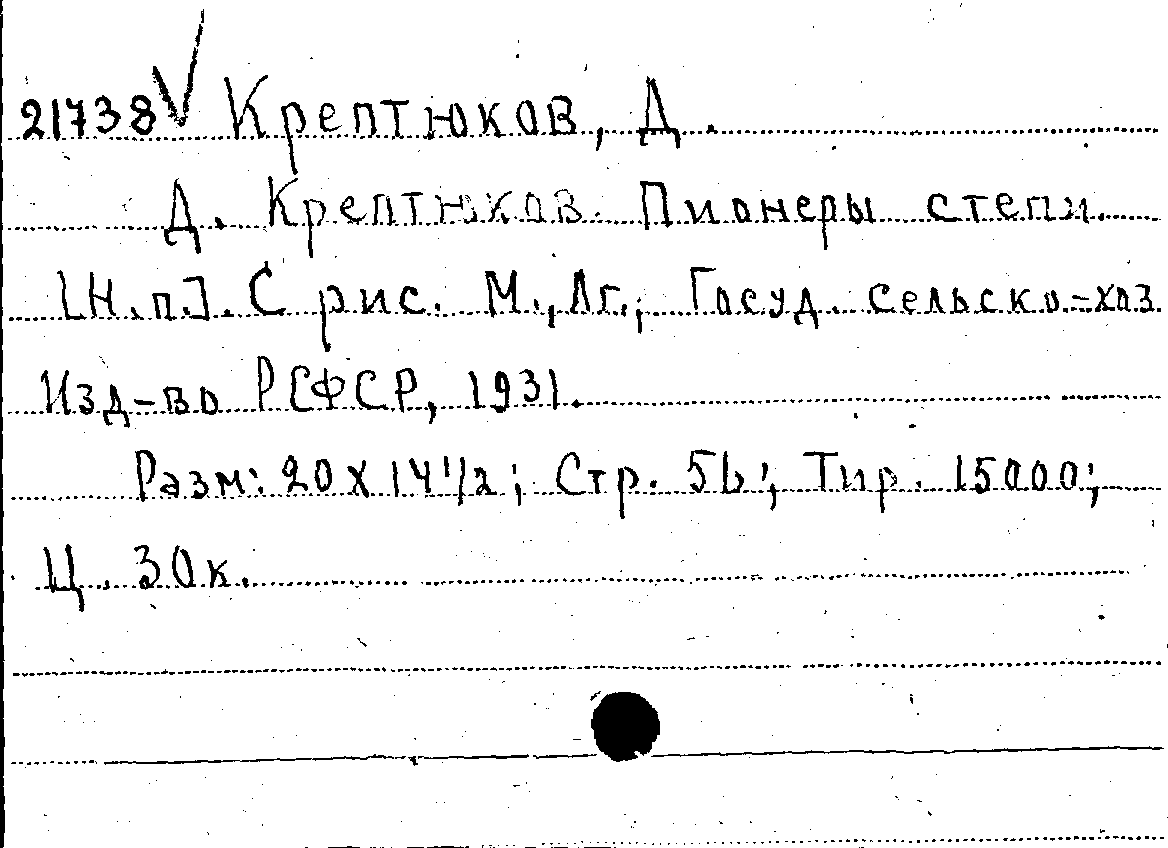 21738 √ Крептюков, Д.
Д. Крептюков. Пионеры степи.
[Н.п.]. С рис. М., Лг., Госуд. сельско.-хоз
Изд-во РСФСР, 1931.
Разм: 20 х 14 1/2; Стр. 56; Тир. 15000;
Ц. 30 к.